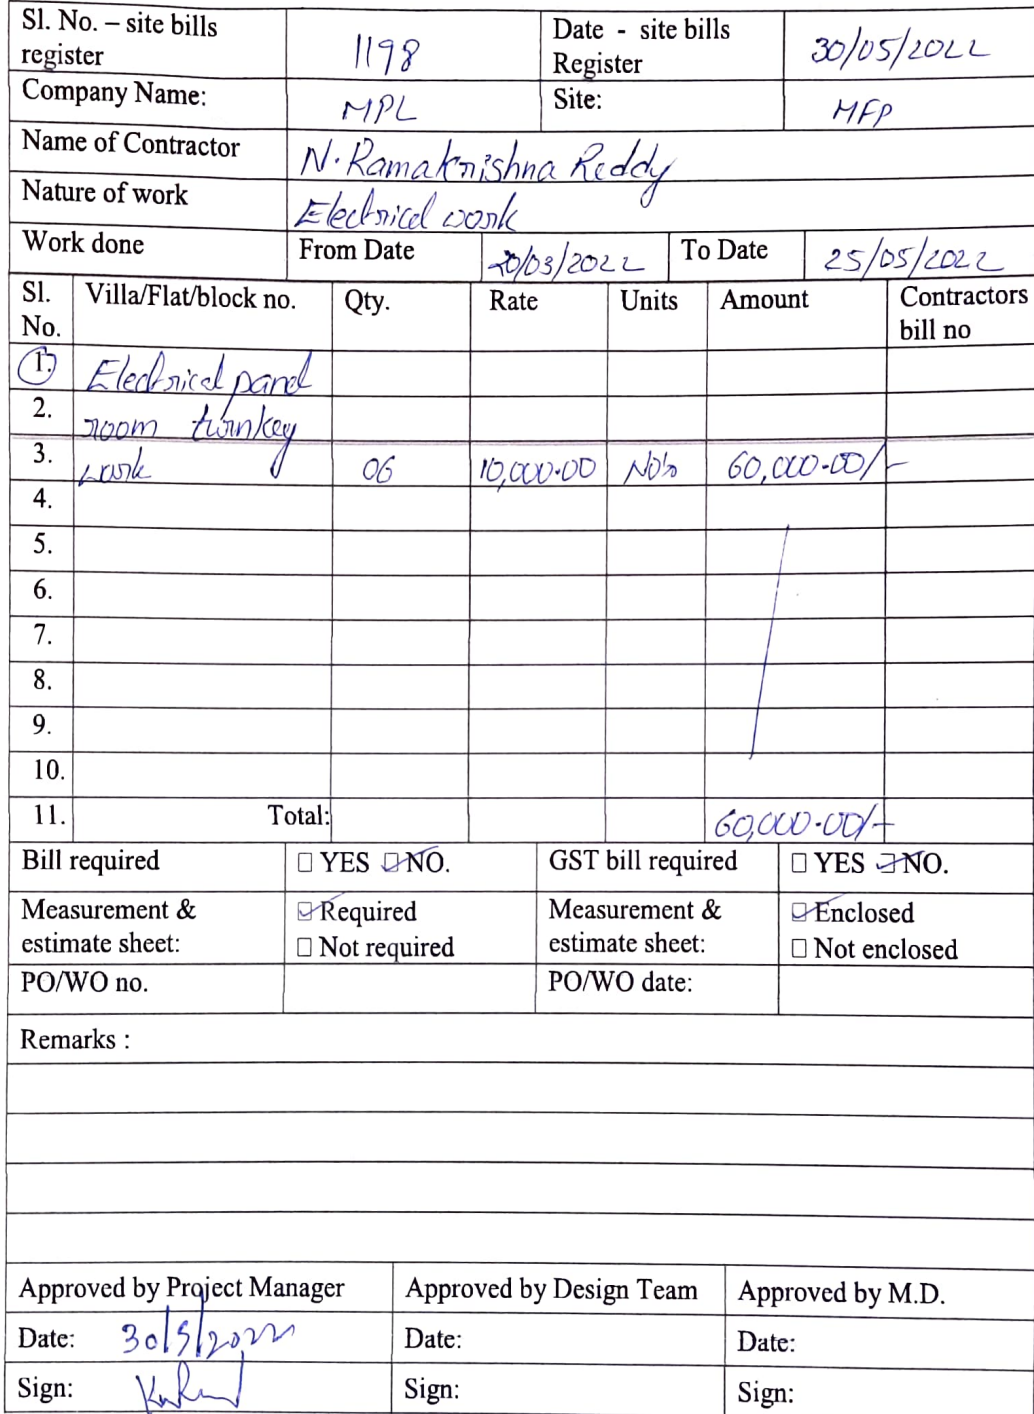 Sl. No. – site bills register 1198 Date - site bills Register 30/05/2022
Company Name: MPL Site: MFP
Name of Contractor N. Ramakrishna Reddy
Nature of work Electrical work
Work done From Date 20/03/2022 To Date 25/05/2022
Sl. No. Villa/Flat/block no. Qty. Rate Units Amount Contractors bill no
1. Electrical panel
2. room turnkey
3. work 06 10,000.00 No's 60,000.00/-
4.
5.
6.
7.
8.
9.
10.
11. Total: 60,000.00/-
Bill required ☐ YES ☑ NO. GST bill required ☐ YES ☑ NO.
Measurement & estimate sheet: ☑ Required Measurement & estimate sheet: ☑ Enclosed
☐ Not required ☐ Not enclosed
PO/WO no. PO/WO date:
Remarks :
Approved by Project Manager Approved by Design Team Approved by M.D.
Date: 30/5/2022 Date: Date:
Sign: Sign: Sign: